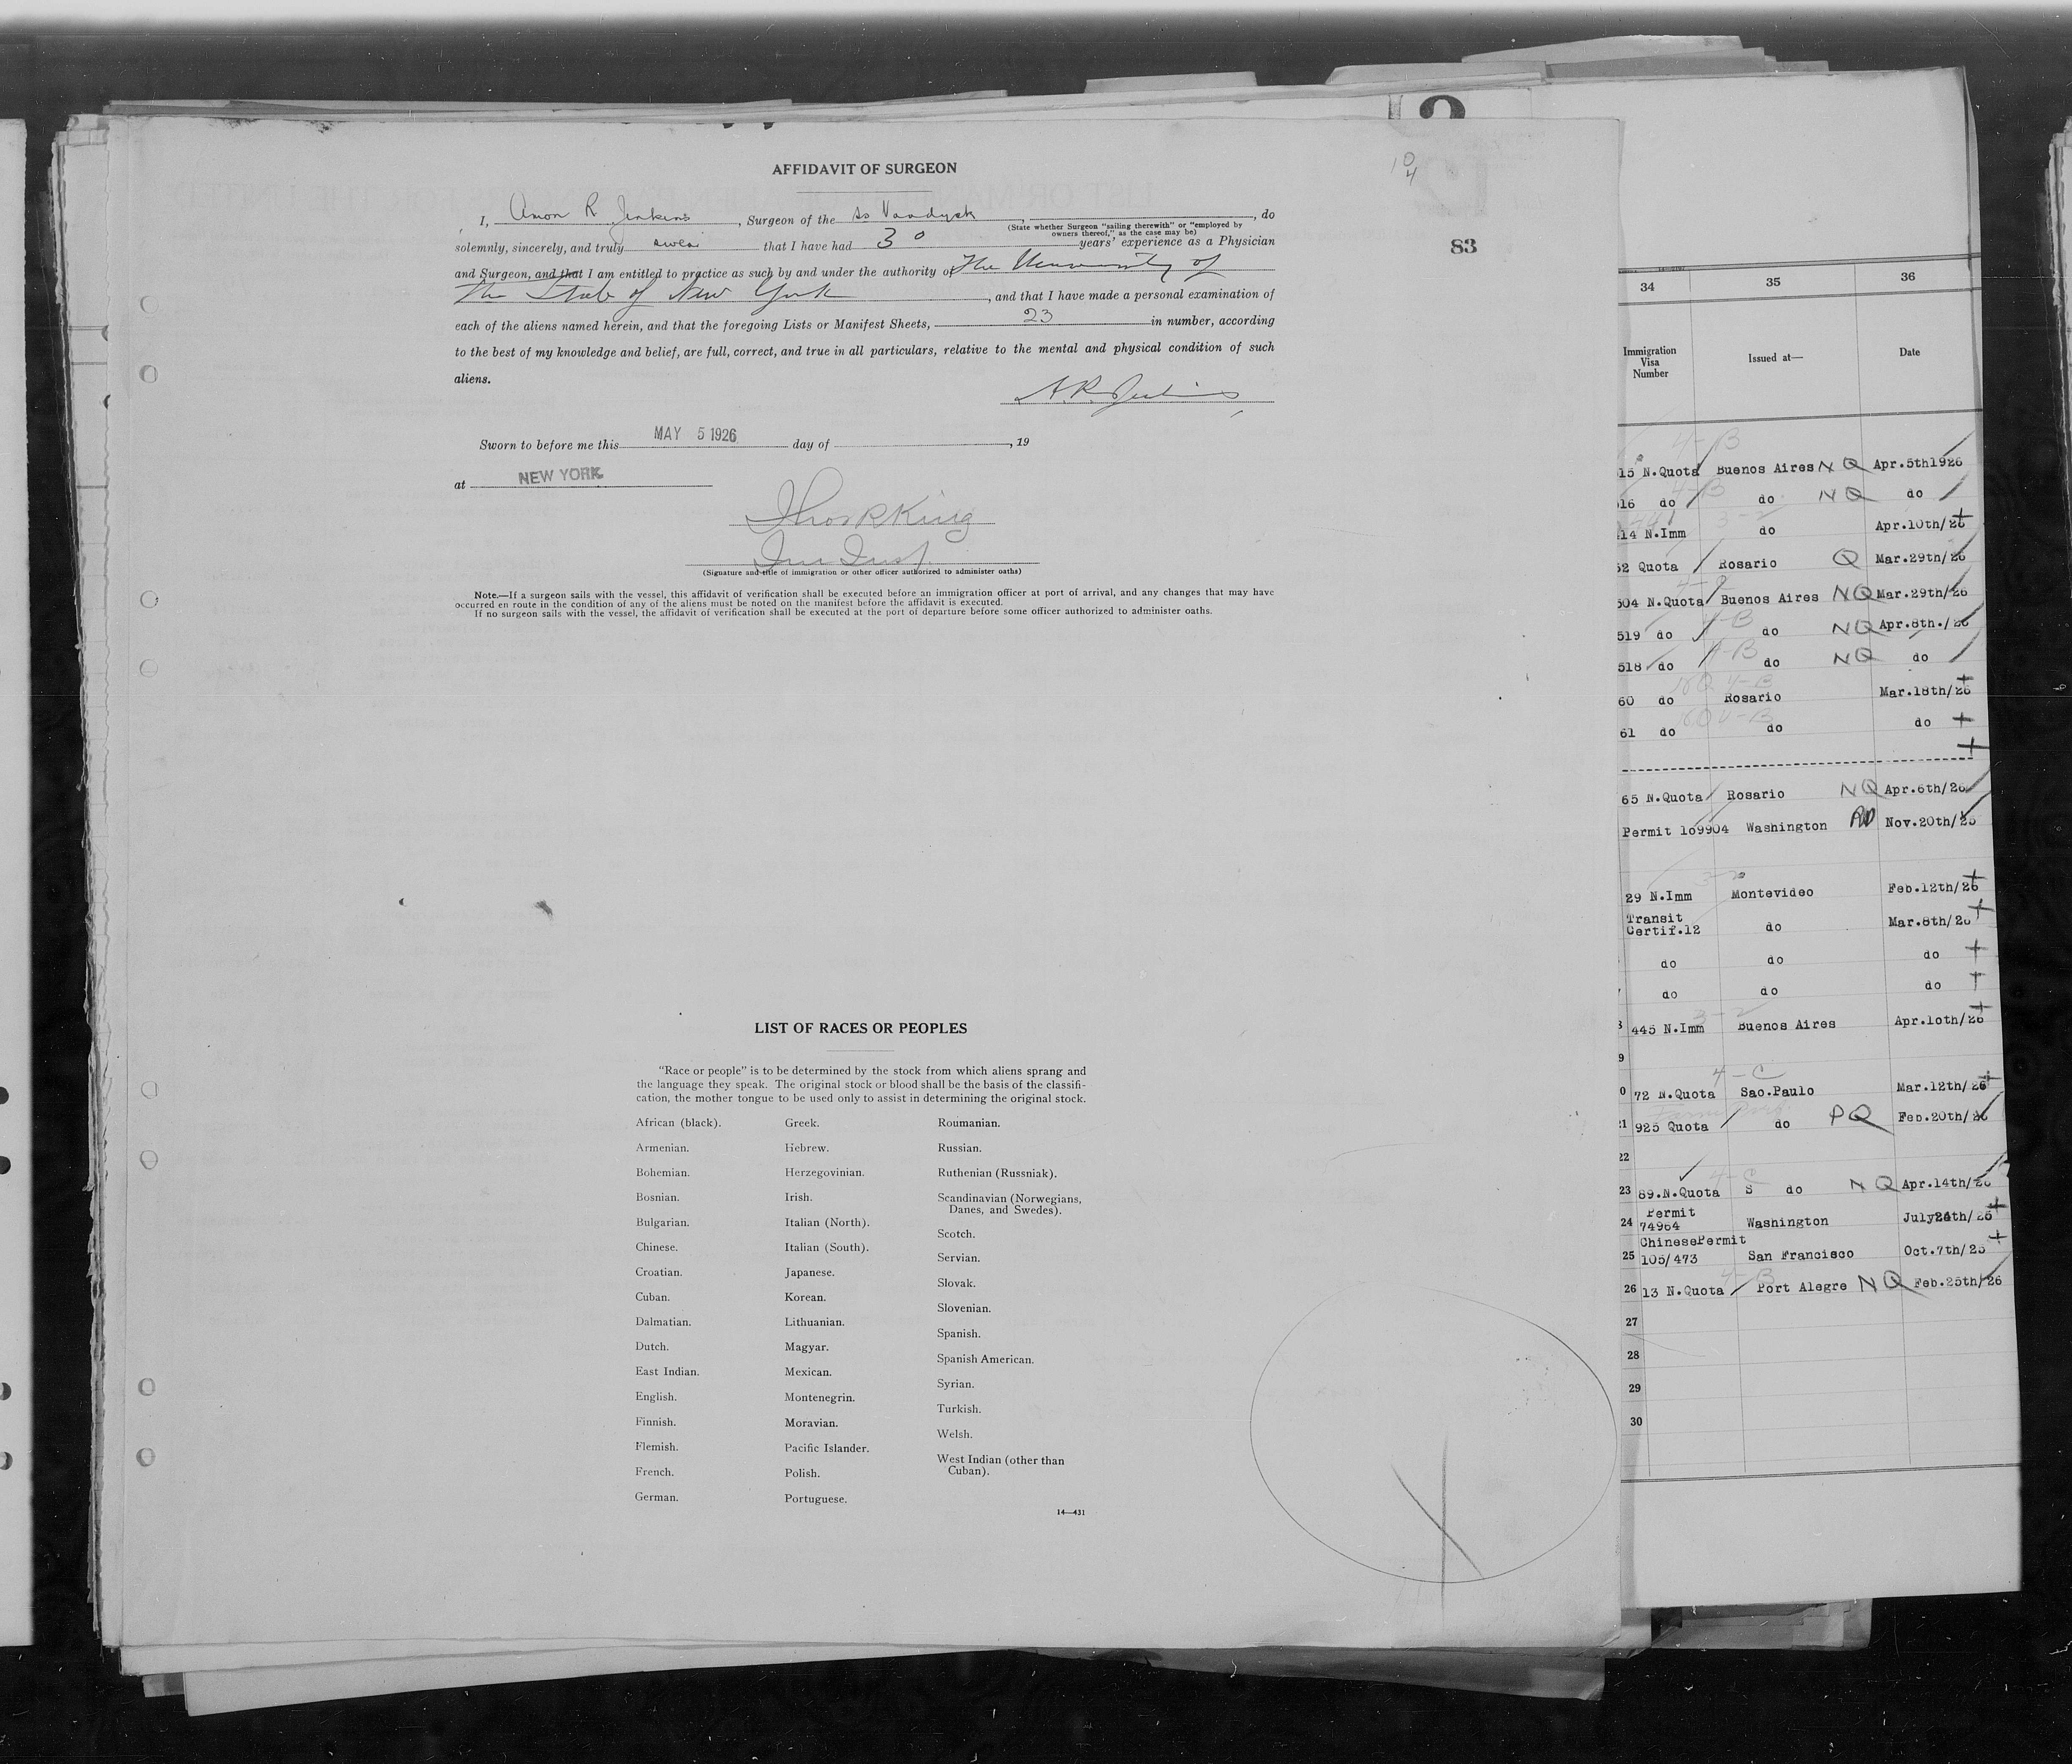 AFFIDAVIT OF SURGEON
I, Amon R Jenkins, Surgeon of the ss Vandyck, , do
(State whether Surgeon "sailing therewith" or "employed by
owners thereof," as the case may be)
solemnly, sincerely, and truly swear that I have had 30 years' experience as a Physician
and Surgeon, and that I am entitled to practice as such by and under the authority of The University of
The State of New York, and that I have made a personal examination of
each of the aliens named herein, and that the foregoing Lists or Manifest Sheets, 23 in number, according
to the best of my knowledge and belief, are full, correct, and true in all particulars, relative to the mental and physical condition of such
aliens.
A.R. Jenkins
Sworn to before me this MAY 5 1926 day of , 19
at NEW YORK
Thos R King
Imm Insp.
(Signature and title of immigration or other officer authorized to administer oaths)
Note.—If a surgeon sails with the vessel, this affidavit of verification shall be executed before an immigration officer at port of arrival, and any changes that may have
occurred en route in the condition of any of the aliens must be noted on the manifest before the affidavit is executed.
If no surgeon sails with the vessel, the affidavit of verification shall be executed at the port of departure before some officer authorized to administer oaths.
LIST OF RACES OR PEOPLES
"Race or people" is to be determined by the stock from which aliens sprang and
the language they speak. The original stock or blood shall be the basis of the classifi-
cation, the mother tongue to be used only to assist in determining the original stock.
African (black).
Armenian.
Bohemian.
Bosnian.
Bulgarian.
Chinese.
Croatian.
Cuban.
Dalmatian.
Dutch.
East Indian.
English.
Finnish.
Flemish.
French.
German.
Greek.
Hebrew.
Herzegovinian.
Irish.
Italian (North).
Italian (South).
Japanese.
Korean.
Lithuanian.
Magyar.
Mexican.
Montenegrin.
Moravian.
Pacific Islander.
Polish.
Portuguese.
Roumanian.
Russian.
Ruthenian (Russniak).
Scandinavian (Norwegians,
Danes, and Swedes).
Scotch.
Servian.
Slovak.
Slovenian.
Spanish.
Spanish American.
Syrian.
Turkish.
Welsh.
West Indian (other than
Cuban).
14—431
10
4
83
34 35 36
Immigration
Visa
Number
Issued at—
Date
4-B
15 N.Quota Buenos Aires NQ Apr.5th1926
16 do do NQ do
14 N.Imm do Apr.10th/26
52 Quota Rosario Q Mar.29th/26
504 N.Quota Buenos Aires NQ Mar.29th/26
519 do do NQ Apr.8th./26
4-B
518 do do NQ do
NQ 4-B
60 do Rosario Mar.18th/26
NQ 4-B
61 do do do
65 N.Quota Rosario NQ Apr.6th/26
Permit 109904 Washington Nov.20th/25
29 N.Imm Montevideo Feb.12th/26
Transit
Certif.12 do Mar.8th/26
do do do
do do do
3-2
445 N.Imm Buenos Aires Apr.10th/26
9
4-C
0 72 N.Quota Sao.Paulo Mar.12th/26
21 925 Quota do PQ Feb.20th/26
22
4-C
23 89.N.Quota S do NQ Apr.14th/26
24 Permit
74964 Washington July24th/25
ChinesePermit
25 105/473 San Francisco Oct.7th/25
4-B
26 13 N.Quota Port Alegre NQ Feb.25th/26
27
28
29
30